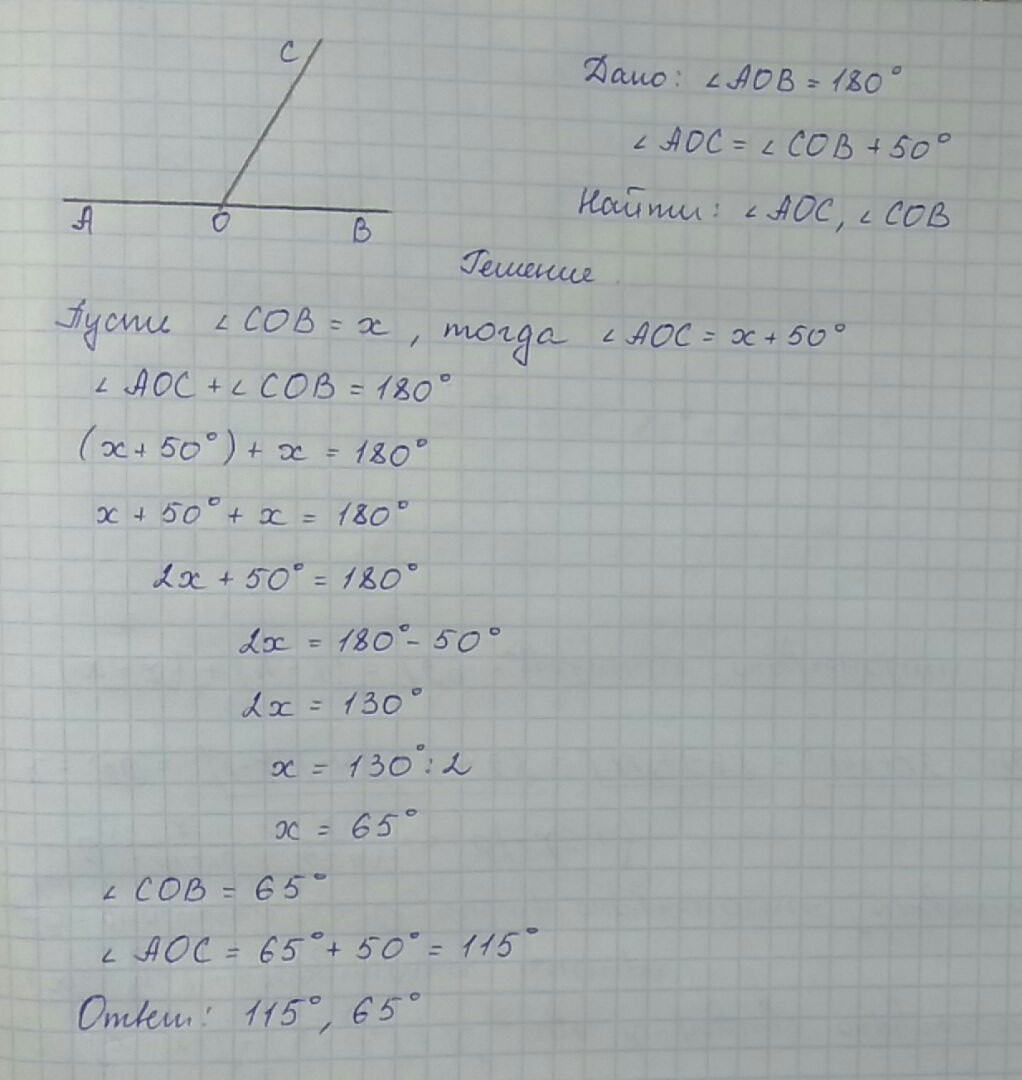 C
A O B
Дано: ∠AOB = 180°
∠AOC = ∠COB + 50°
Найти: ∠AOC, ∠COB
Решение
Пусть ∠COB = x, тогда ∠AOC = x + 50°
∠AOC + ∠COB = 180°
(x + 50°) + x = 180°
x + 50° + x = 180°
2x + 50° = 180°
2x = 180° - 50°
2x = 130°
x = 130° : 2
x = 65°
∠COB = 65°
∠AOC = 65° + 50° = 115°
Ответ: 115°, 65°